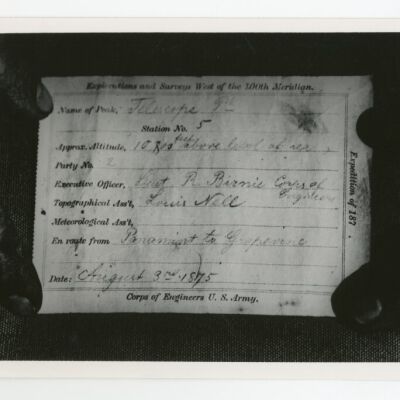 Explorations and Surveys West of the 100th Meridian.
Name of Peak, Telescope Pk
Station No. 5
Approx. Altitude, 10 800 feet above level of sea
Party No. 2
Executive Officer, Lieut R. Birnie Corps of Engineers
Topographical Ass't, Louis Nell
Meteorological Ass't,
En route from Panamint to Grapevine
Date: August 3rd 1875
Corps of Engineers U. S. Army.
Expedition of 187